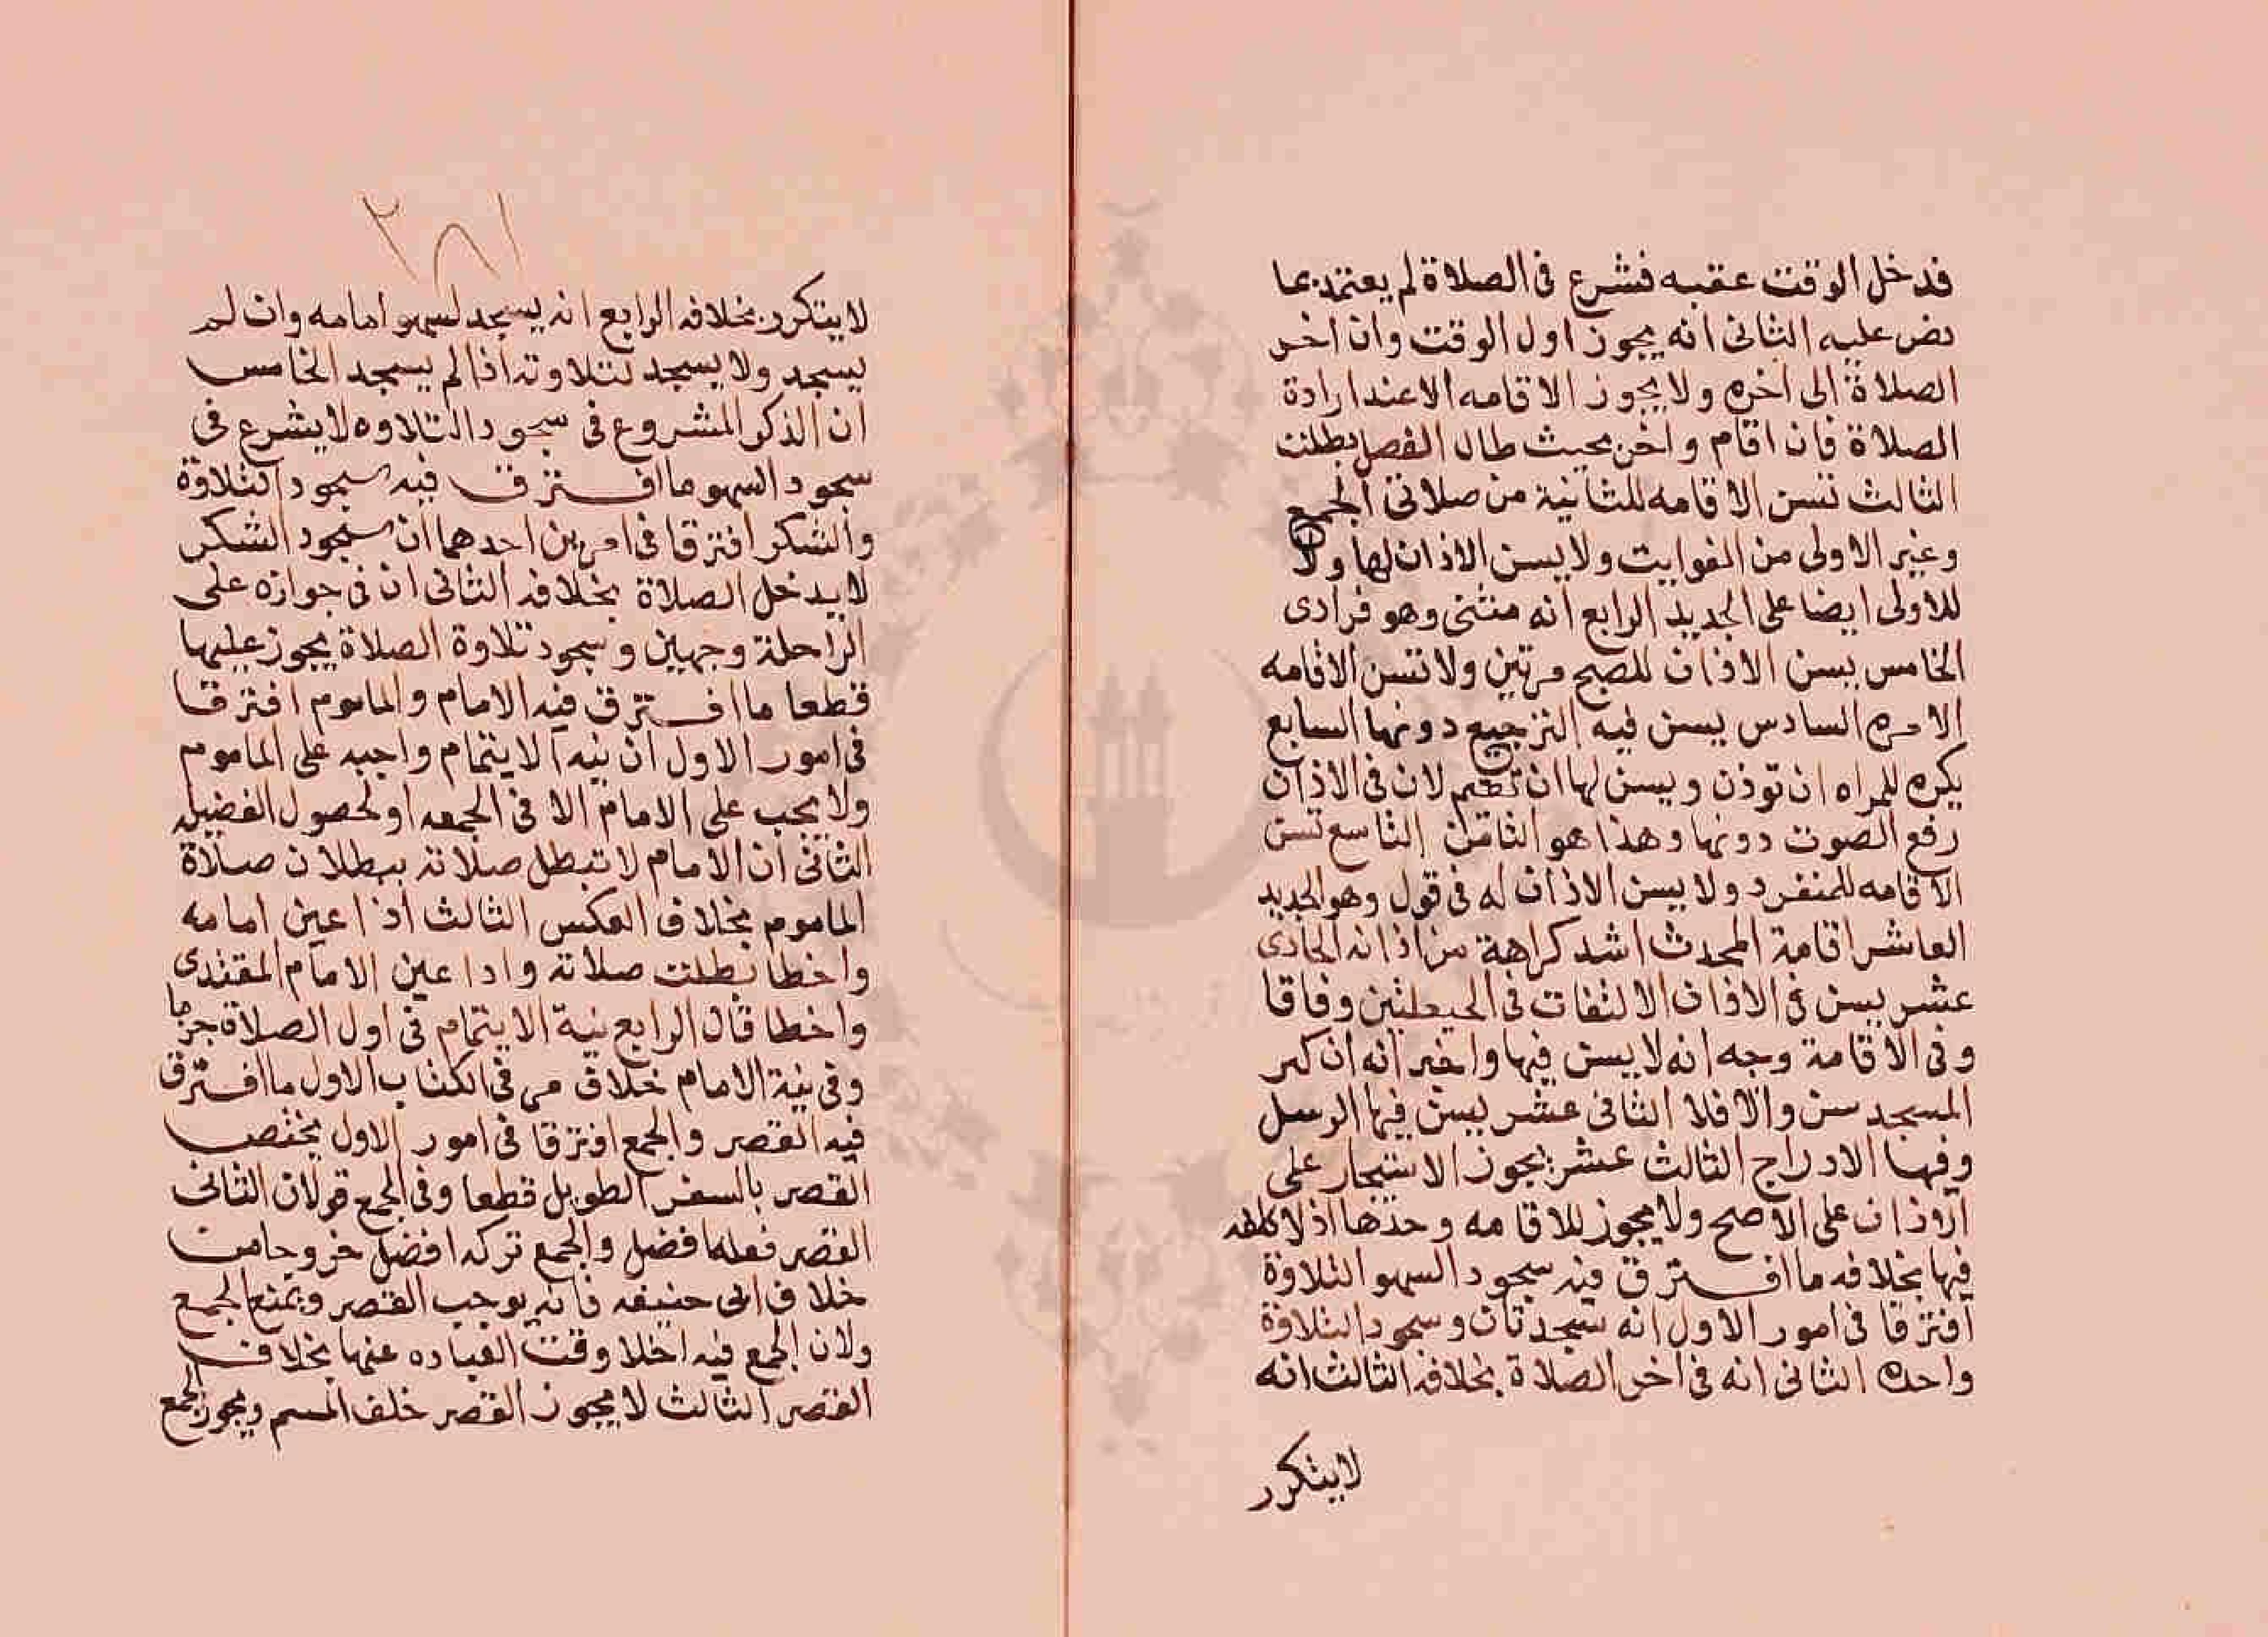 فدخل الوقت عقبه فشرع فى الصلاة لم يعتد بها
نص عليه الثانى انه يجوز اول الوقت وان اخر
الصلاة الى اخره ولا يجوز الاقامه الا عند ارادة
الصلاة فان اقام واخر بحيث طال الفصل بطلت
الثالث تسن الاقامه للثانية من صلاتى الجمع
وغير الاولى من الفوايت ولا يسن الاذان لها ولا
للاولى ايضا على الجديد الرابع انه مثنى وهو فرادى
الخامس يسن الاذان للصبح مرتين ولا تسن الاقامه
الا مره السادس يسن فيه الترجيع دونها السابع
يكره للمراه ان توذن ويسن لها ان تقيم لان فى الاذان
رفع الصوت دونها وهذا هو الثامن التاسع تسن
الاقامه للمنفرد ولا يسن الاذان له فى قول وهو الجديد
العاشر اقامة المحدث اشد كراهة من اذانه الحادى
عشر يسن فى الاذان الالتفات فى الحيعلتين وفاقا
وفى الاقامة وجه انه لا يسن فيها واخر انه ان كبر
المسجد سن والا فلا الثانى عشر يسن فيها الرسل
وفيها الادراج الثالث عشر يجوز الاستيجار على
الاذان على الاصح ولا يجوز للاقامه وحدها اذ لا كلفه
فيها بخلافه ما افترق فيه سجود السهو التلاوة
افترقا فى امور الاول انه سجدتان وسجود التلاوة
واحده الثانى انه فى اخر الصلاة بخلافه الثالث انه
لا يتكرر
٢٨١
لا يتكرر بخلافه الرابع انه يسجد لسهو امامه وان لم
يسجد ولا يسجد لتلاوته اذا لم يسجد الخامس
ان الذكر المشروع فى سجود التلاوه لا يشرع فى
سجود السهو ما افترق فيه سجود التلاوة
والشكر افترقا فى امرين احدهما ان سجود الشكر
لا يدخل الصلاة بخلافه الثانى ان فى جوازه على
الراحلة وجهين وسجود تلاوة الصلاة يجوز عليها
قطعا ما افترق فيه الامام والماموم افترقا
فى امور الاول ان نية الايتمام واجبه على الماموم
ولا يجب على الامام الا فى الجمعه او لحصول الفضيله
الثانى ان الامام لا تبطل صلاته ببطلان صلاة
الماموم بخلاف العكس الثالث اذا عين امامه
واخطا بطلت صلاته واذا عين الامام المقتدى
واخطا فان الرابع نية الايتمام فى اول الصلاة جزما
وفى نية الامام خلاف مر فى الكتاب الاول ما افترق
فيه القصر والجمع افترقا فى امور الاول يختص
القصر بالسفر الطويل قطعا وفى الجمع قولان الثانى
القصر فعله افضل والجمع تركه افضل خروجا من
خلاف ابى حنيفه فانه يوجب القصر ويمنع الجمع
ولان الجمع فيه اخلا وقت العباده عنها بخلاف
القصر الثالث لا يجوز القصر خلف المتم ويجوز الجمع